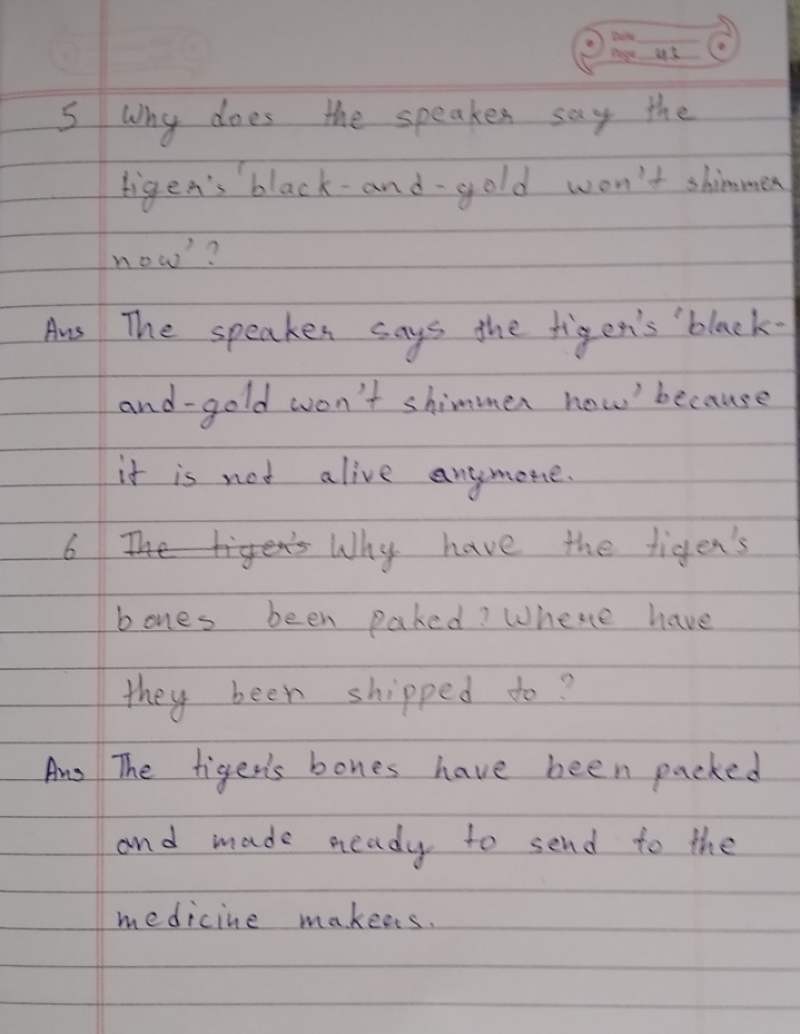 Date
Page 43
5 Why does the speaker say the
tiger's 'black-and-gold won't shimmer
now'?
Ans The speaker says the tiger's 'black-
and-gold won't shimmer now' because
it is not alive anymore.
6 The tiger's Why have the tiger's
bones been paked? Where have
they been shipped to?
Ans The tiger's bones have been packed
and made ready to send to the
medicine makers.